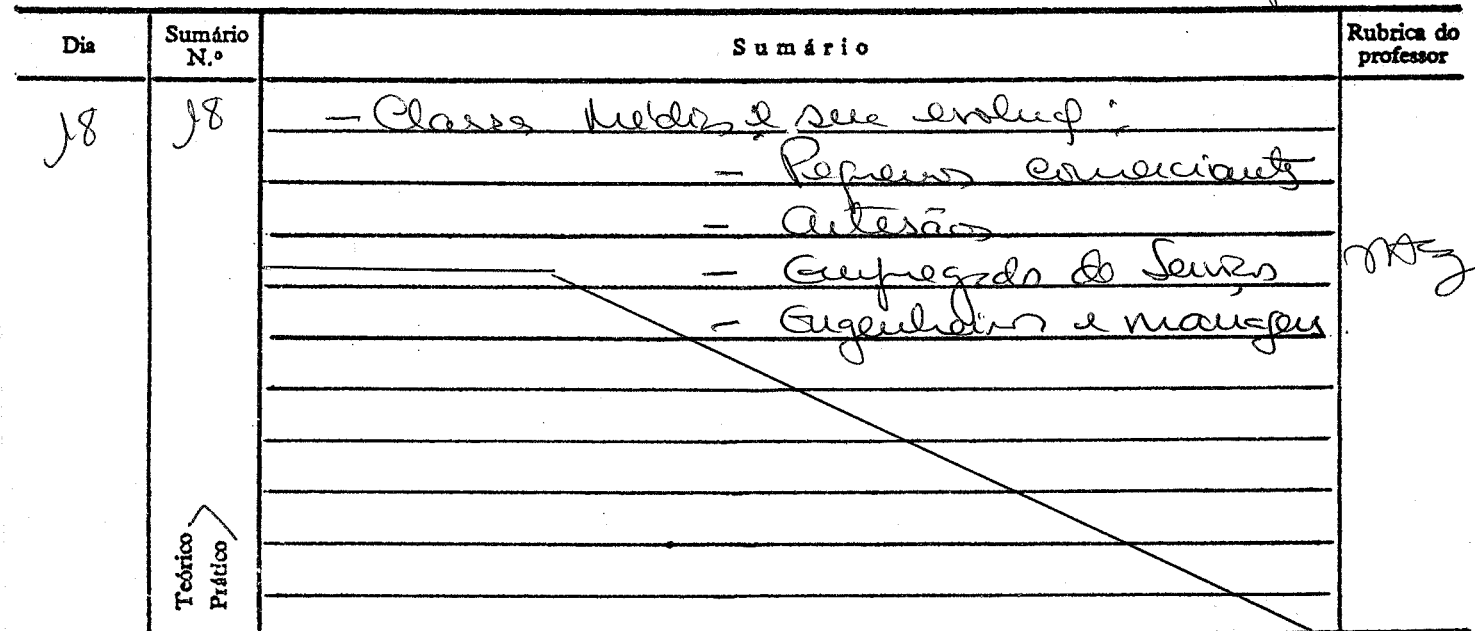 Dia Sumário N.º Sumário Rubrica do professor
18 18 - Classes Médias e sua evoluç:
- Pequenos comerciantes
- Artesãos
- Empregados de Serviços
- Engenheiros e managers
Teórico
Prático